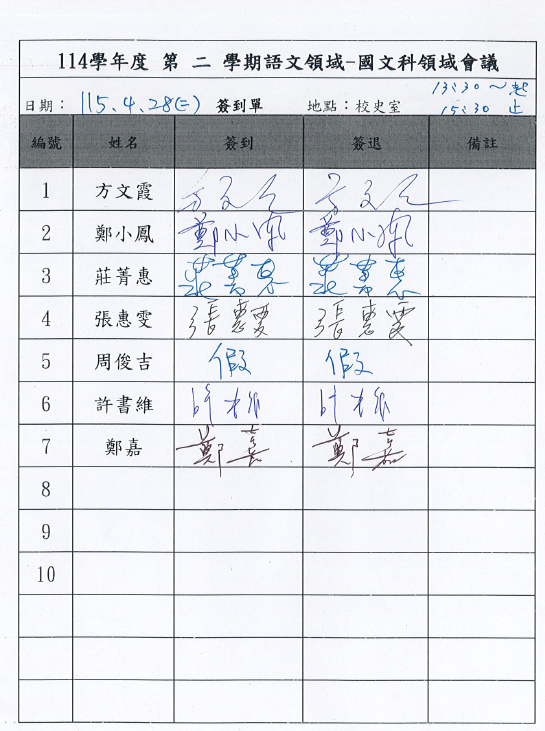 114學年度 第 二 學期語文領域-國文科領域會議
日期： 115.4.28(二) 簽到單 地點：校史室 13:30～起
15:30 止
編號 姓名 簽到 簽退 備註
1 方文霞 方文霞 方文霞
2 鄭小鳳 鄭小鳳 鄭小鳳
3 莊菁惠 莊菁惠 莊菁惠
4 張惠雯 張惠雯 張惠雯
5 周俊吉 假 假
6 許書維 許書維 許書維
7 鄭嘉 鄭嘉 鄭嘉
8
9
10